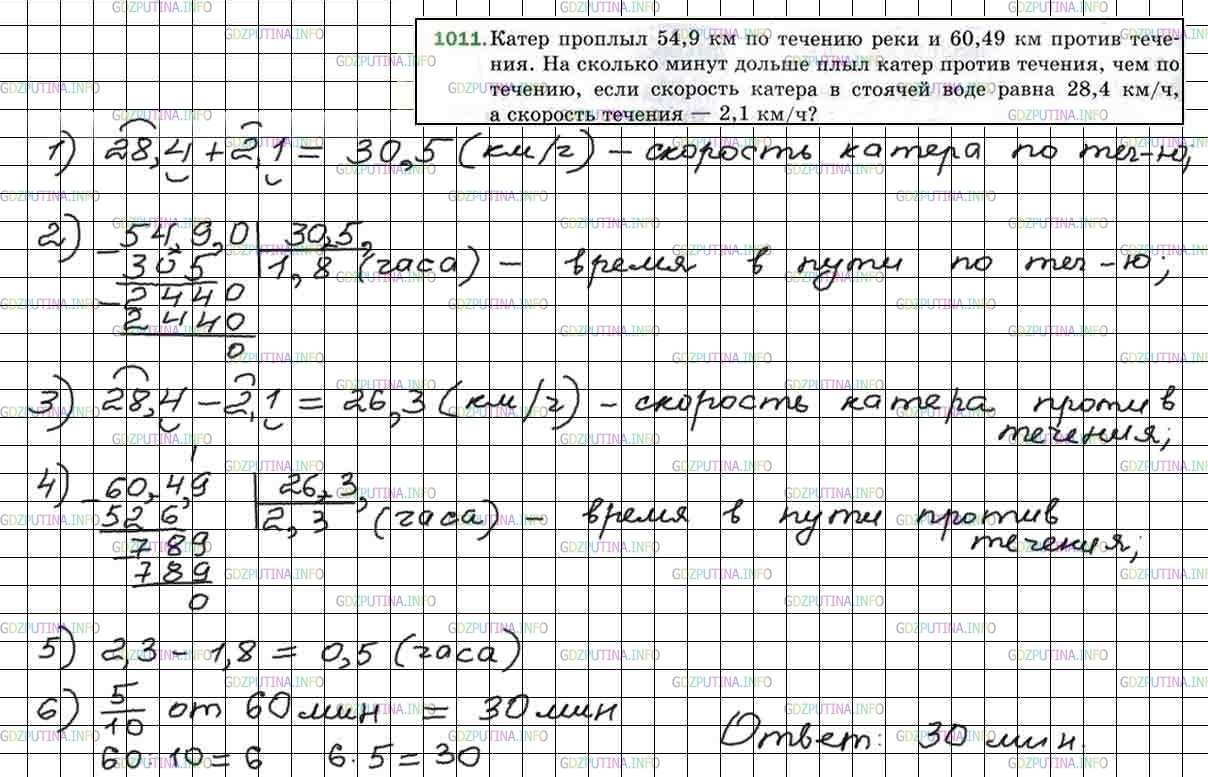 1011. Катер проплыл 54,9 км по течению реки и 60,49 км против тече-
ния. На сколько минут дольше плыл катер против течения, чем по
течению, если скорость катера в стоячей воде равна 28,4 км/ч,
а скорость течения — 2,1 км/ч?
1) 28,4 + 2,1 = 30,5 (км/ч) – скорость катера по теч-ю;
2) – 54,9,0 30,5,
305 1,8 (часа) – время в пути по теч-ю;
– 2440
2440
0
3) 28,4 – 2,1 = 26,3 (км/ч) – скорость катера против
течения;
4) – 60,4,9 26,3,
52 6 2,3 (часа) – время в пути против
течения;
– 789
789
0
5) 2,3 – 1,8 = 0,5 (часа)
6) 5/10 от 60 мин = 30 мин
60 : 10 = 6 6 · 5 = 30
Ответ: 30 мин.
GDZPUTINA.INFO